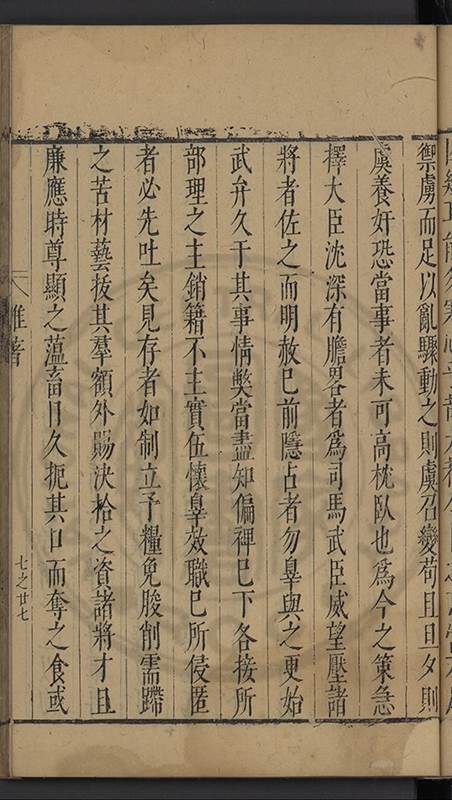 禦虜而足以亂驟動之則虞召變苟且旦夕則
虞養奸恐當事者未可高枕臥也為今之策急
擇大臣沈深有膽畧者為司馬武臣威望壓諸
將者佐之而明赦已前隱占者勿辠與之更始
武弁久于其事情獘當盡知偏裨已下各接所
部理之主銷籍不主實伍懷辠效職已所侵匿
者必先吐矣見存者如制立予糧免朘削需蹛
之苦材藝拔其羣額外賜決拾之資諸將才且
廉應時尊顯之薀畜日久扼其口而奪之食或
雜著
七之廿七